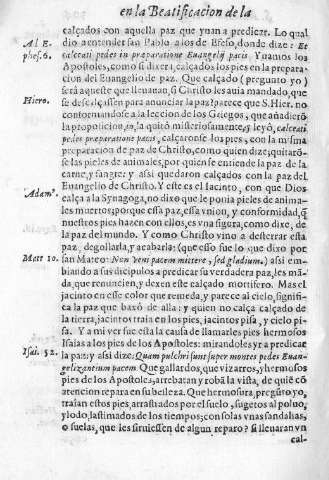 en la Beatificacion de la
calçados con aquella paz que yuan a predicar. Lo qual
Al E- dio a entender san Pablo a los de Efeso, donde dize: Et
phes. 6. calceati pedes in præparatione Euangelij pacis. Yuan los
Apostoles, como si dixera, calçados los pies en la prepara-
cion del Euangelio de paz. Que calçado (pregunto yo)
será aqueste que lleuauan, si Christo les auia mandado, que
Hiero. se descalçassen para anunciar la paz? parece que S. Hier. no
conformandose a la leccion de los Griegos, que añadierō
la proposicion, in, la quitò misteriosamente, y leyò, calceati
pedes præparatione pacis, calçaronse los pies, con la misma
preparacion de paz de Christo, como quien dize; quitarō-
se las pieles de animales, por quien se entiende la paz de la
carne, y sangre y assi quedaron calçados con la paz del
Euangelio de Christo. Y este es el Iacinto, con que Dios
calça a la Synagoga, no dixo que le ponia pieles de anima-
les muertos, porque essa paz, essa vnion, y conformidad, q̃
nuestros pies hazen con ellos, es vna figura, como dixe, de
la paz del mundo. Y como Christo vino a desterrar esta
paz, degollarla, y acabarla: (que esso fue lo que dixo por
Matt 10. san Mateo: Non veni pacem mittere, sed gladium.) assi em-
biando a sus dicipulos a predicar su verdadera paz, les mā-
da, que renuncien, y dexen este calçado mortifero. Mas el
jacinto en esse color que remeda, y parece al cielo, signifi-
ca la paz que baxò de alla: y quien no calça calçado de
la tierra, jacintos trata en los pies, jacintos pisa, y cielo pi-
sa. Y a mi ver fue esta la causa de llamarles pies hermosos
Isaias a los pies de los Apostoles: mirandoles yr a predicar
Isai. 52. la paz: y assi dize: Quam pulchri sunt super montes pedes Euan-
gelizantium pacem Que gallardos, que vizarros, y hermosos
pies de los Apostoles, arrebatan y robā la vista, de quiē cō
atencion repara en su belleza. Que hermosura, pregūto yo,
traian estos pies, arrastrados por el suelo, sugetos al poluo,
y lodo, lastimados de los tiempos; con solas vnas sandalias,
o suelas, que les siruiessen de algun reparo? si lleuaran vn
cal-